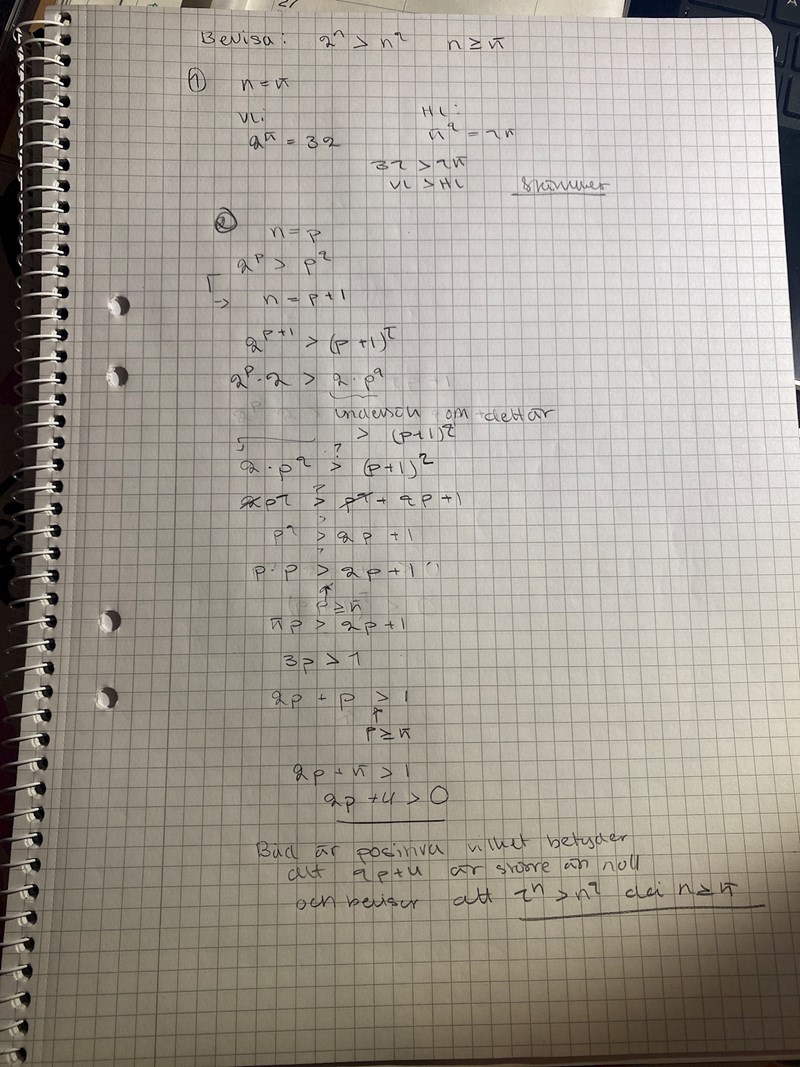 Bevisa: 2ⁿ > n² n ≥ 5
① n = 5
VL: HL:
2⁵ = 32 5² = 25
32 > 25
VL > HL Stämmer
② n = p
2ᵖ > p²
→ n = p+1
2ᵖ⁺¹ > (p+1)²
2ᵖ·2 > 2·p²
undersök om detta är
> (p+1)²
2·p² >? (p+1)²
2p² >? p² + 2p + 1
p² >? 2p + 1
p·p >? 2p + 1
↑
p ≥ 5
5p > 2p+1
3p > 1
2p + p > 1
↑
p ≥ 5
2p + 5 > 1
2p + 4 > 0
Båd är positiva vilket betyder
att 2p+4 är större än noll
och bevisar att 2ⁿ > n² då n ≥ 5